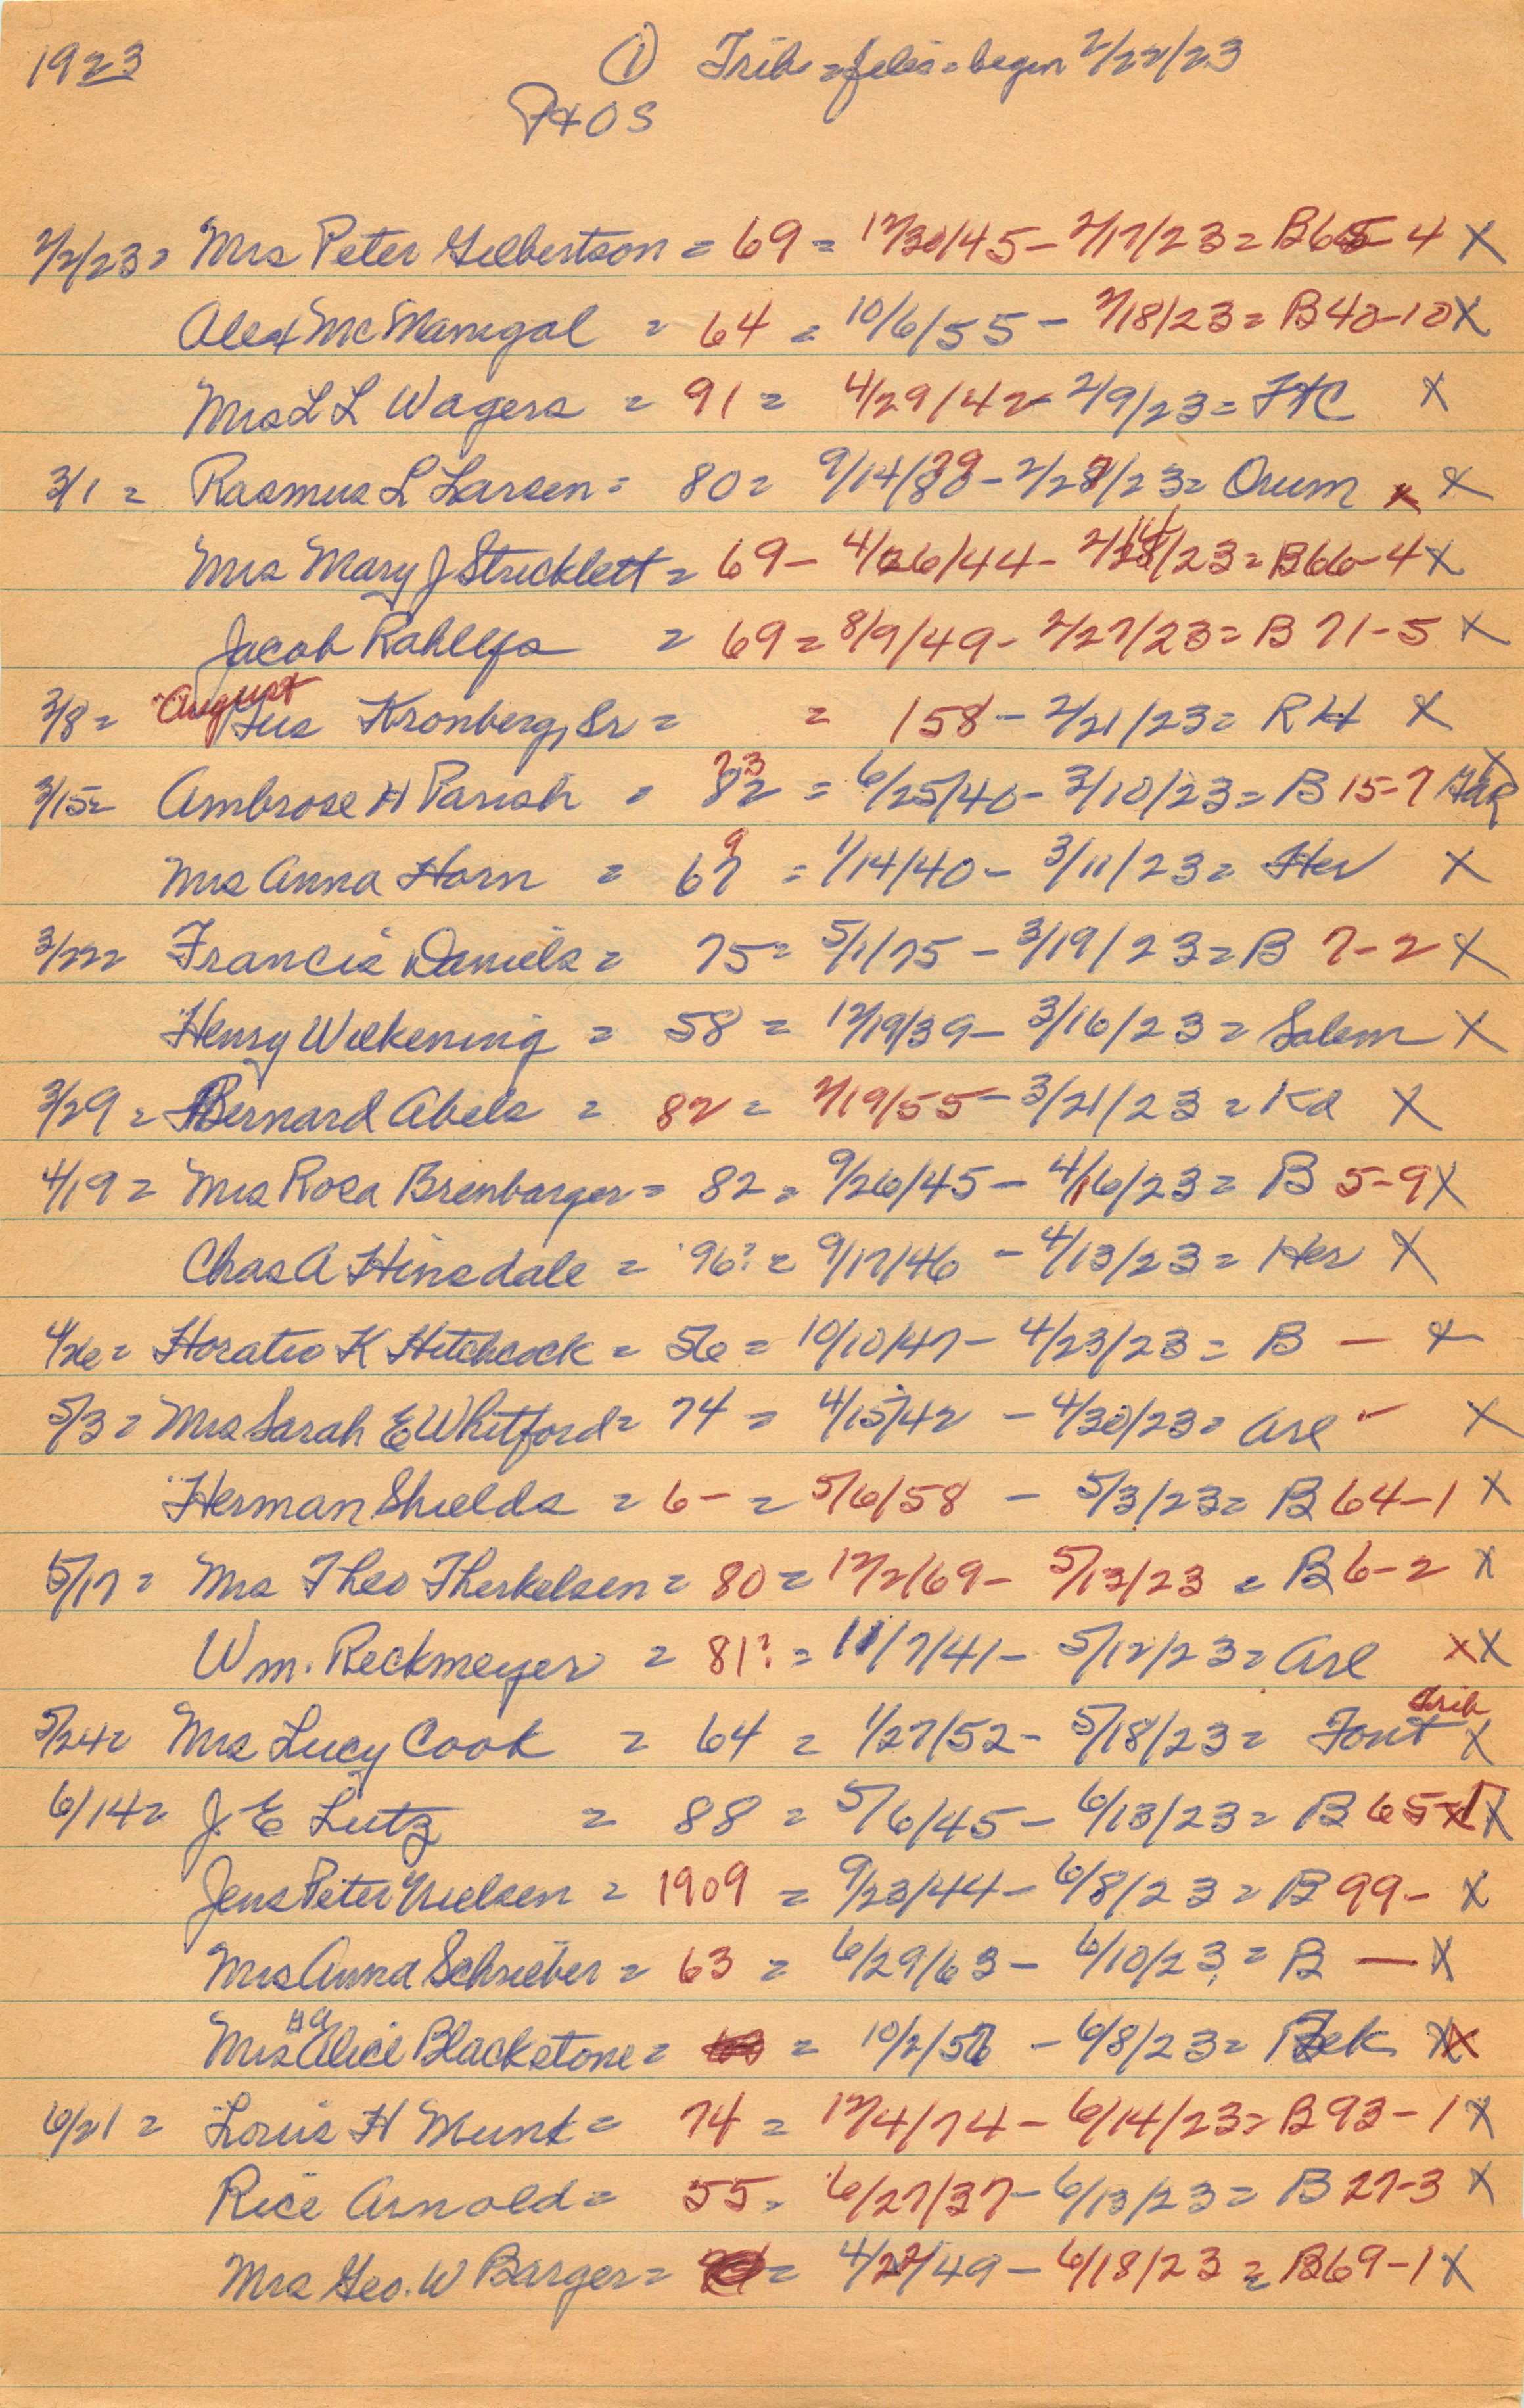 1923 ① Trib = files = begin 2/22/23
P + O S
2/2/23 = Mrs Peter Gilbertson = 69 = 12/30/45 - 2/17/23 = B 65-4 X
Alex McManigal = 64 = 10/6/55 - 2/18/23 = B 40-10 X
Mrs L L Wagers = 91 = 4/29/42 - 2/9/23 = FtC X
3/1 = Rasmus L Larsen = 80 = 9/14/39 - 2/27/23 = Orum x X
Mrs Mary J Stricklett = 69 - 4/26/44 - 2/18/23 = B66-4 X
Jacob Rahlfs = 69 = 8/9/49 - 2/27/23 = B 71-5 X
August
3/8 = Gus Kronberg, Sr = = 158 - 2/21/23 = RH X
73
3/15 = Ambrose H Parish = 82 = 6/25/40 - 3/10/23 = B 15-7 X
9
Mrs Anna Horn = 67 = 1/14/40 - 3/11/23 = Her X
3/22 = Francis Daniels = 75 = 5/1/75 - 3/19/23 = B 7-2 X
Henry Wilkening = 58 = 12/19/39 - 3/16/23 = Salem X
3/29 = Bernard Abels = 82 = 2/19/55 - 3/21/23 = Kd X
4/19 = Mrs Rosa Brenbarger = 82 = 9/26/45 - 4/16/23 = B 5-9 X
Chas A Hinsdale = '96? = 9/17/46 - 4/13/23 = Her X
4/26 = Horatio K Hitchcock = 56 = 10/10/47 - 4/23/23 = B — X
5/3 = Mrs Sarah E Whitford = 74 = 4/15/42 - 4/30/23 = Arl - X
Herman Shields = 6- = 5/6/58 - 5/3/23 = B 64-1 X
5/17 = Mrs Theo Therkelsen = 80 = 12/2/69 - 5/13/23 = B 6-2 X
Wm. Reckmeyer = 81? = 11/7/41 - 5/12/23 = Arl XX
Trib
5/24 = Mrs Lucy Cook = 64 = 1/27/52 - 5/18/23 = Font X
6/14 = J E Lutz = 88 = 5/6/45 - 6/13/23 = B 65-1 X
Jens Peter Nielsen = 1909 = 9/23/44 - 6/8/23 = B 99- X
Mrs Anna Schrieber = 63 = 6/29/63 - 6/10/23 = B — X
Mrs Alice Blackstone = = 10/2/56 - 6/8/23 = Bek XX
6/21 = Louis H Munk = 74 = 12/4/74 - 6/14/23 = B 93-1 X
Rice Arnold = 55 = 6/27/37 - 6/13/23 = B 27-3 X
Mrs Geo. W Barger = = 4/22/49 - 6/18/23 = B69-1 X